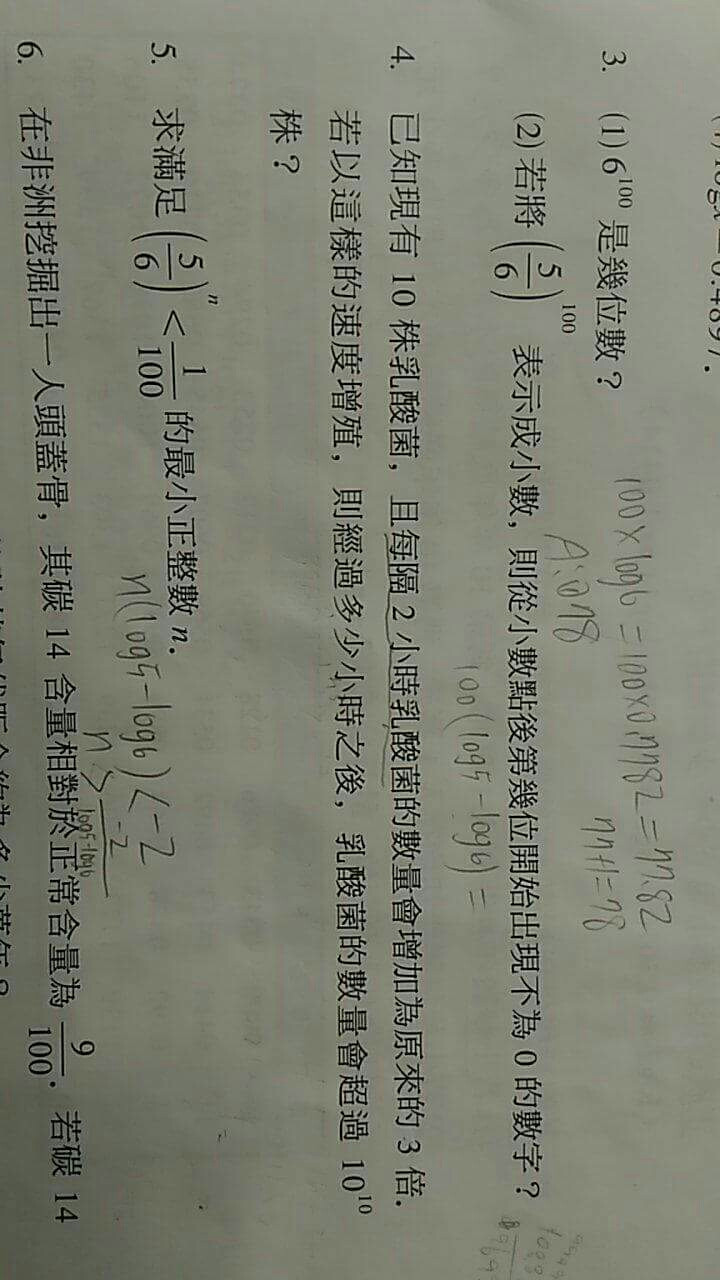 3. (1) 6¹⁰⁰ 是幾位數？
100×log6=100×0.7782=77.82
77+1=78
A:078
(2) 若將 (5/6)¹⁰⁰ 表示成小數，則從小數點後第幾位開始出現不為 0 的數字？
100(log5-log6)=
4. 已知現有 10 株乳酸菌，且每隔 2 小時乳酸菌的數量會增加為原來的 3 倍．
若以這樣的速度增殖，則經過多少小時之後，乳酸菌的數量會超過 10¹⁰
株？
5. 求滿足 (5/6)ⁿ < 1/100 的最小正整數 n．
n(log5-log6)<-2
n > -2/(log5-log6)
6. 在非洲挖掘出一人頭蓋骨，其碳 14 含量相對於正常含量為 9/100．若碳 14